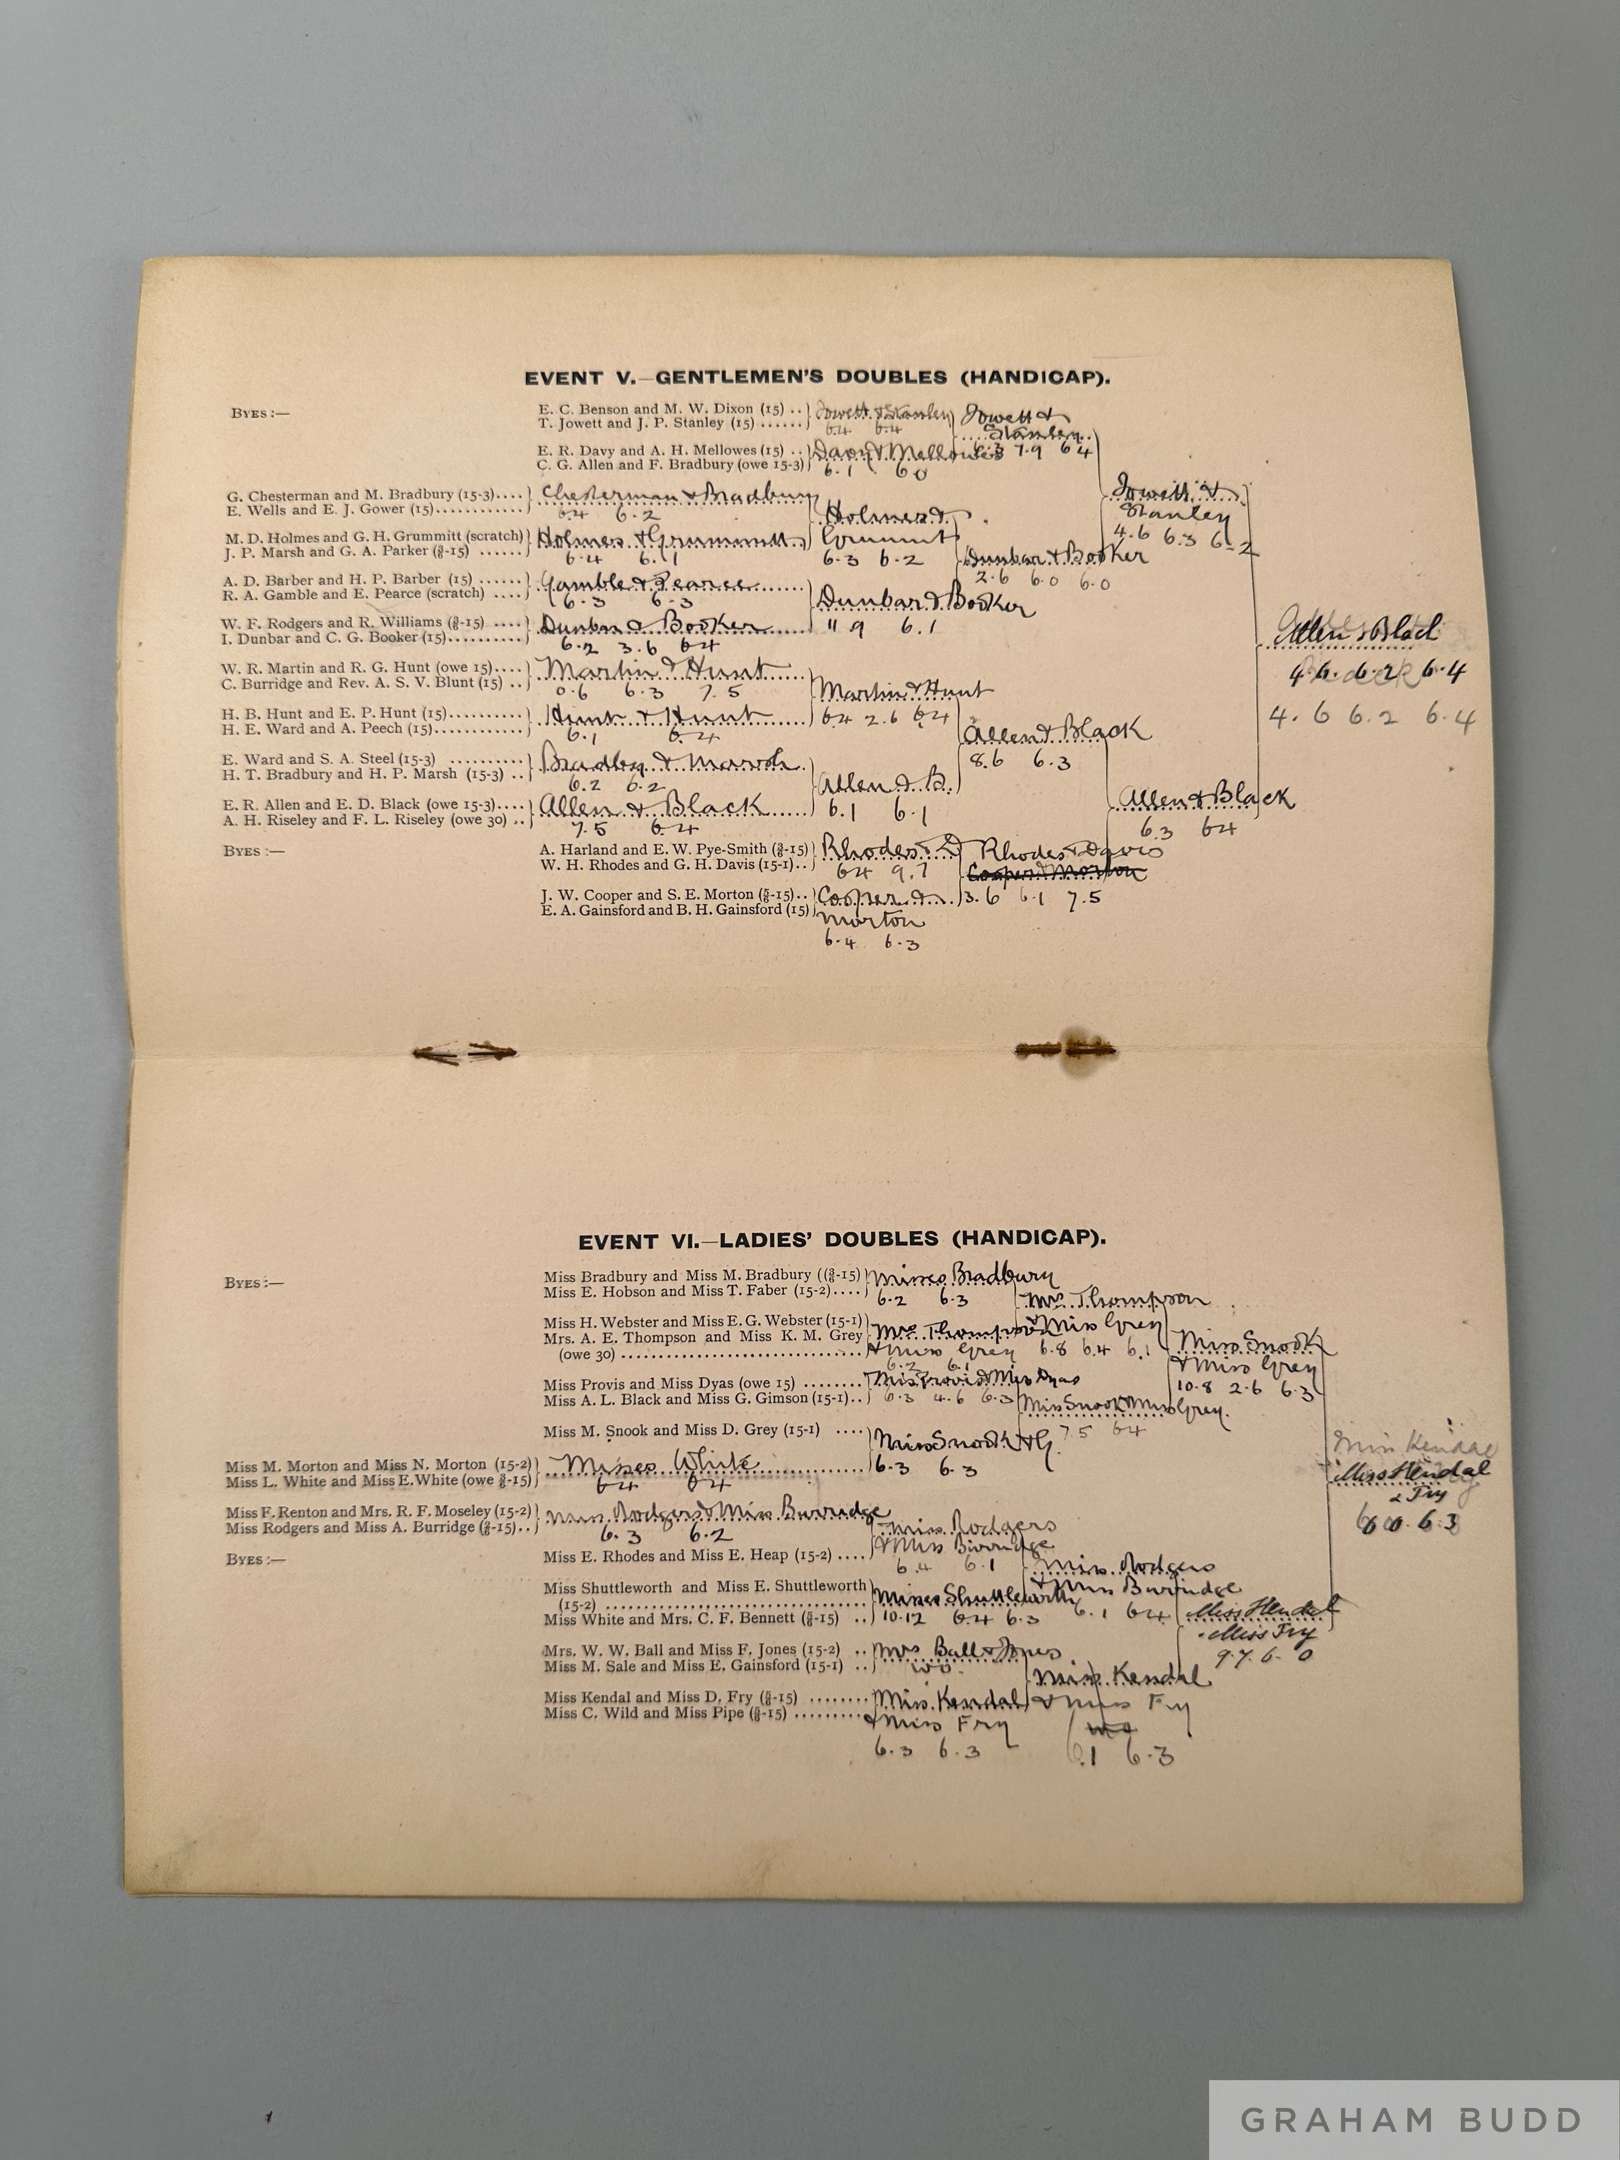 EVENT V.—GENTLEMEN'S DOUBLES (HANDICAP).
BYES:—
E. C. Benson and M. W. Dixon (15) ..
T. Jowett and J. P. Stanley (15) ......
Jowett & Stanley
6.4 6.4
E. R. Davy and A. H. Mellowes (15) ..
C. G. Allen and F. Bradbury (owe 15-3)
Davy & Mellowes
6.1 6.0
Jowett &
Stanley
6.3 7.9 6.4
G. Chesterman and M. Bradbury (15-3)....
E. Wells and E. J. Gower (15)............
Chesterman & Bradbury
6.4 6.2
M. D. Holmes and G. H. Grummitt (scratch)
J. P. Marsh and G. A. Parker (3/6-15) ......
Holmes & Grummitt
6.4 6.1
Holmes &
Grummitt
6.3 6.2
A. D. Barber and H. P. Barber (15) ......
R. A. Gamble and E. Pearce (scratch) ....
Gamble & Pearce
6.3 6.3
W. F. Rodgers and R. Williams (3/6-15) ....
I. Dunbar and C. G. Booker (15)..........
Dunbar & Booker
6.2 3.6 6.4
Dunbar & Booker
11 9 6.1
Dunbar & Booker
2.6 6.0 6.0
Jowett &
Stanley
4.6 6.3 6.2
W. R. Martin and R. G. Hunt (owe 15)....
C. Burridge and Rev. A. S. V. Blunt (15) ..
Martin & Hunt
0.6 6.3 7.5
H. B. Hunt and E. P. Hunt (15)..........
H. E. Ward and A. Peech (15)............
Hunt & Hunt
6.1 6.4
Martin & Hunt
6.4 2.6 6.4
E. Ward and S. A. Steel (15-3) ..........
H. T. Bradbury and H. P. Marsh (15-3) ..
Bradbury & Marsh
6.2 6.2
E. R. Allen and E. D. Black (owe 15-3)....
A. H. Riseley and F. L. Riseley (owe 30) ..
Allen & Black
7.5 6.4
Allen & B.
6.1 6.1
Allen & Black
8.6 6.3
BYES:—
A. Harland and E. W. Pye-Smith (3/6-15)
W. H. Rhodes and G. H. Davis (15-1)..
Rhodes & D
6.4 9.7
J. W. Cooper and S. E. Morton (5/6-15)..
E. A. Gainsford and B. H. Gainsford (15)
Cooper &
Morton
6.4 6.3
Rhodes & Davis
Cooper & Morton
3.6 6.1 7.5
Allen & Black
6.3 6.4
Allen & Black
4.6. 6.2 6.4
4.6 6.2 6.4
EVENT VI.—LADIES' DOUBLES (HANDICAP).
BYES:—
Miss Bradbury and Miss M. Bradbury ((3/6-15)
Miss E. Hobson and Miss T. Faber (15-2)....
Misses Bradbury
6.2 6.3
Miss H. Webster and Miss E. G. Webster (15-1)
Mrs. A. E. Thompson and Miss K. M. Grey
(owe 30) ..............................
Mrs Thompson
& Miss Grey
6.2 6.1
Mrs Thompson
& Miss Grey
6.8 6.4 6.1
Miss Provis and Miss Dyas (owe 15) ........
Miss A. L. Black and Miss G. Gimson (15-1)..
Miss Provis & Miss Dyas
6.3 4.6 6.3
Miss M. Snook and Miss D. Grey (15-1) ....
Miss M. Morton and Miss N. Morton (15-2)
Miss L. White and Miss E. White (owe 3/6-15)
Misses White
6.4 6.4
Miss Snook & G.
6.3 6.3
Miss Snook & Miss Grey.
7.5 6.4
Miss Snook
& Miss Grey
10.8 2.6 6.3
Miss F. Renton and Mrs. R. F. Moseley (15-2)
Miss Rodgers and Miss A. Burridge (3/6-15)..
Miss Rodgers & Miss Burridge
6.3 6.2
BYES:—
Miss E. Rhodes and Miss E. Heap (15-2) ....
Miss Rodgers
& Miss Burridge
6.4 6.1
Miss Shuttleworth and Miss E. Shuttleworth
(15-2) ................................
Miss White and Mrs. C. F. Bennett (3/6-15) ..
Misses Shuttleworth
10.12 6.4 6.3
Miss Rodgers
& Miss Burridge
6.1 6.4
Mrs. W. W. Ball and Miss F. Jones (15-2) ..
Miss M. Sale and Miss E. Gainsford (15-1) ..
Mrs Ball & Jones
w.o.
Miss Kendal and Miss D. Fry (3/6-15) ........
Miss C. Wild and Miss Pipe (3/6-15) .........
Miss Kendal
& Miss Fry
6.3 6.3
Miss Kendal
& Miss Fry
6.1 6.3
Miss Kendal
& Miss Fry
9.7. 6.0
Miss Kendal
Miss Kendal
& Fry
6.0. 6.3
GRAHAM BUDD